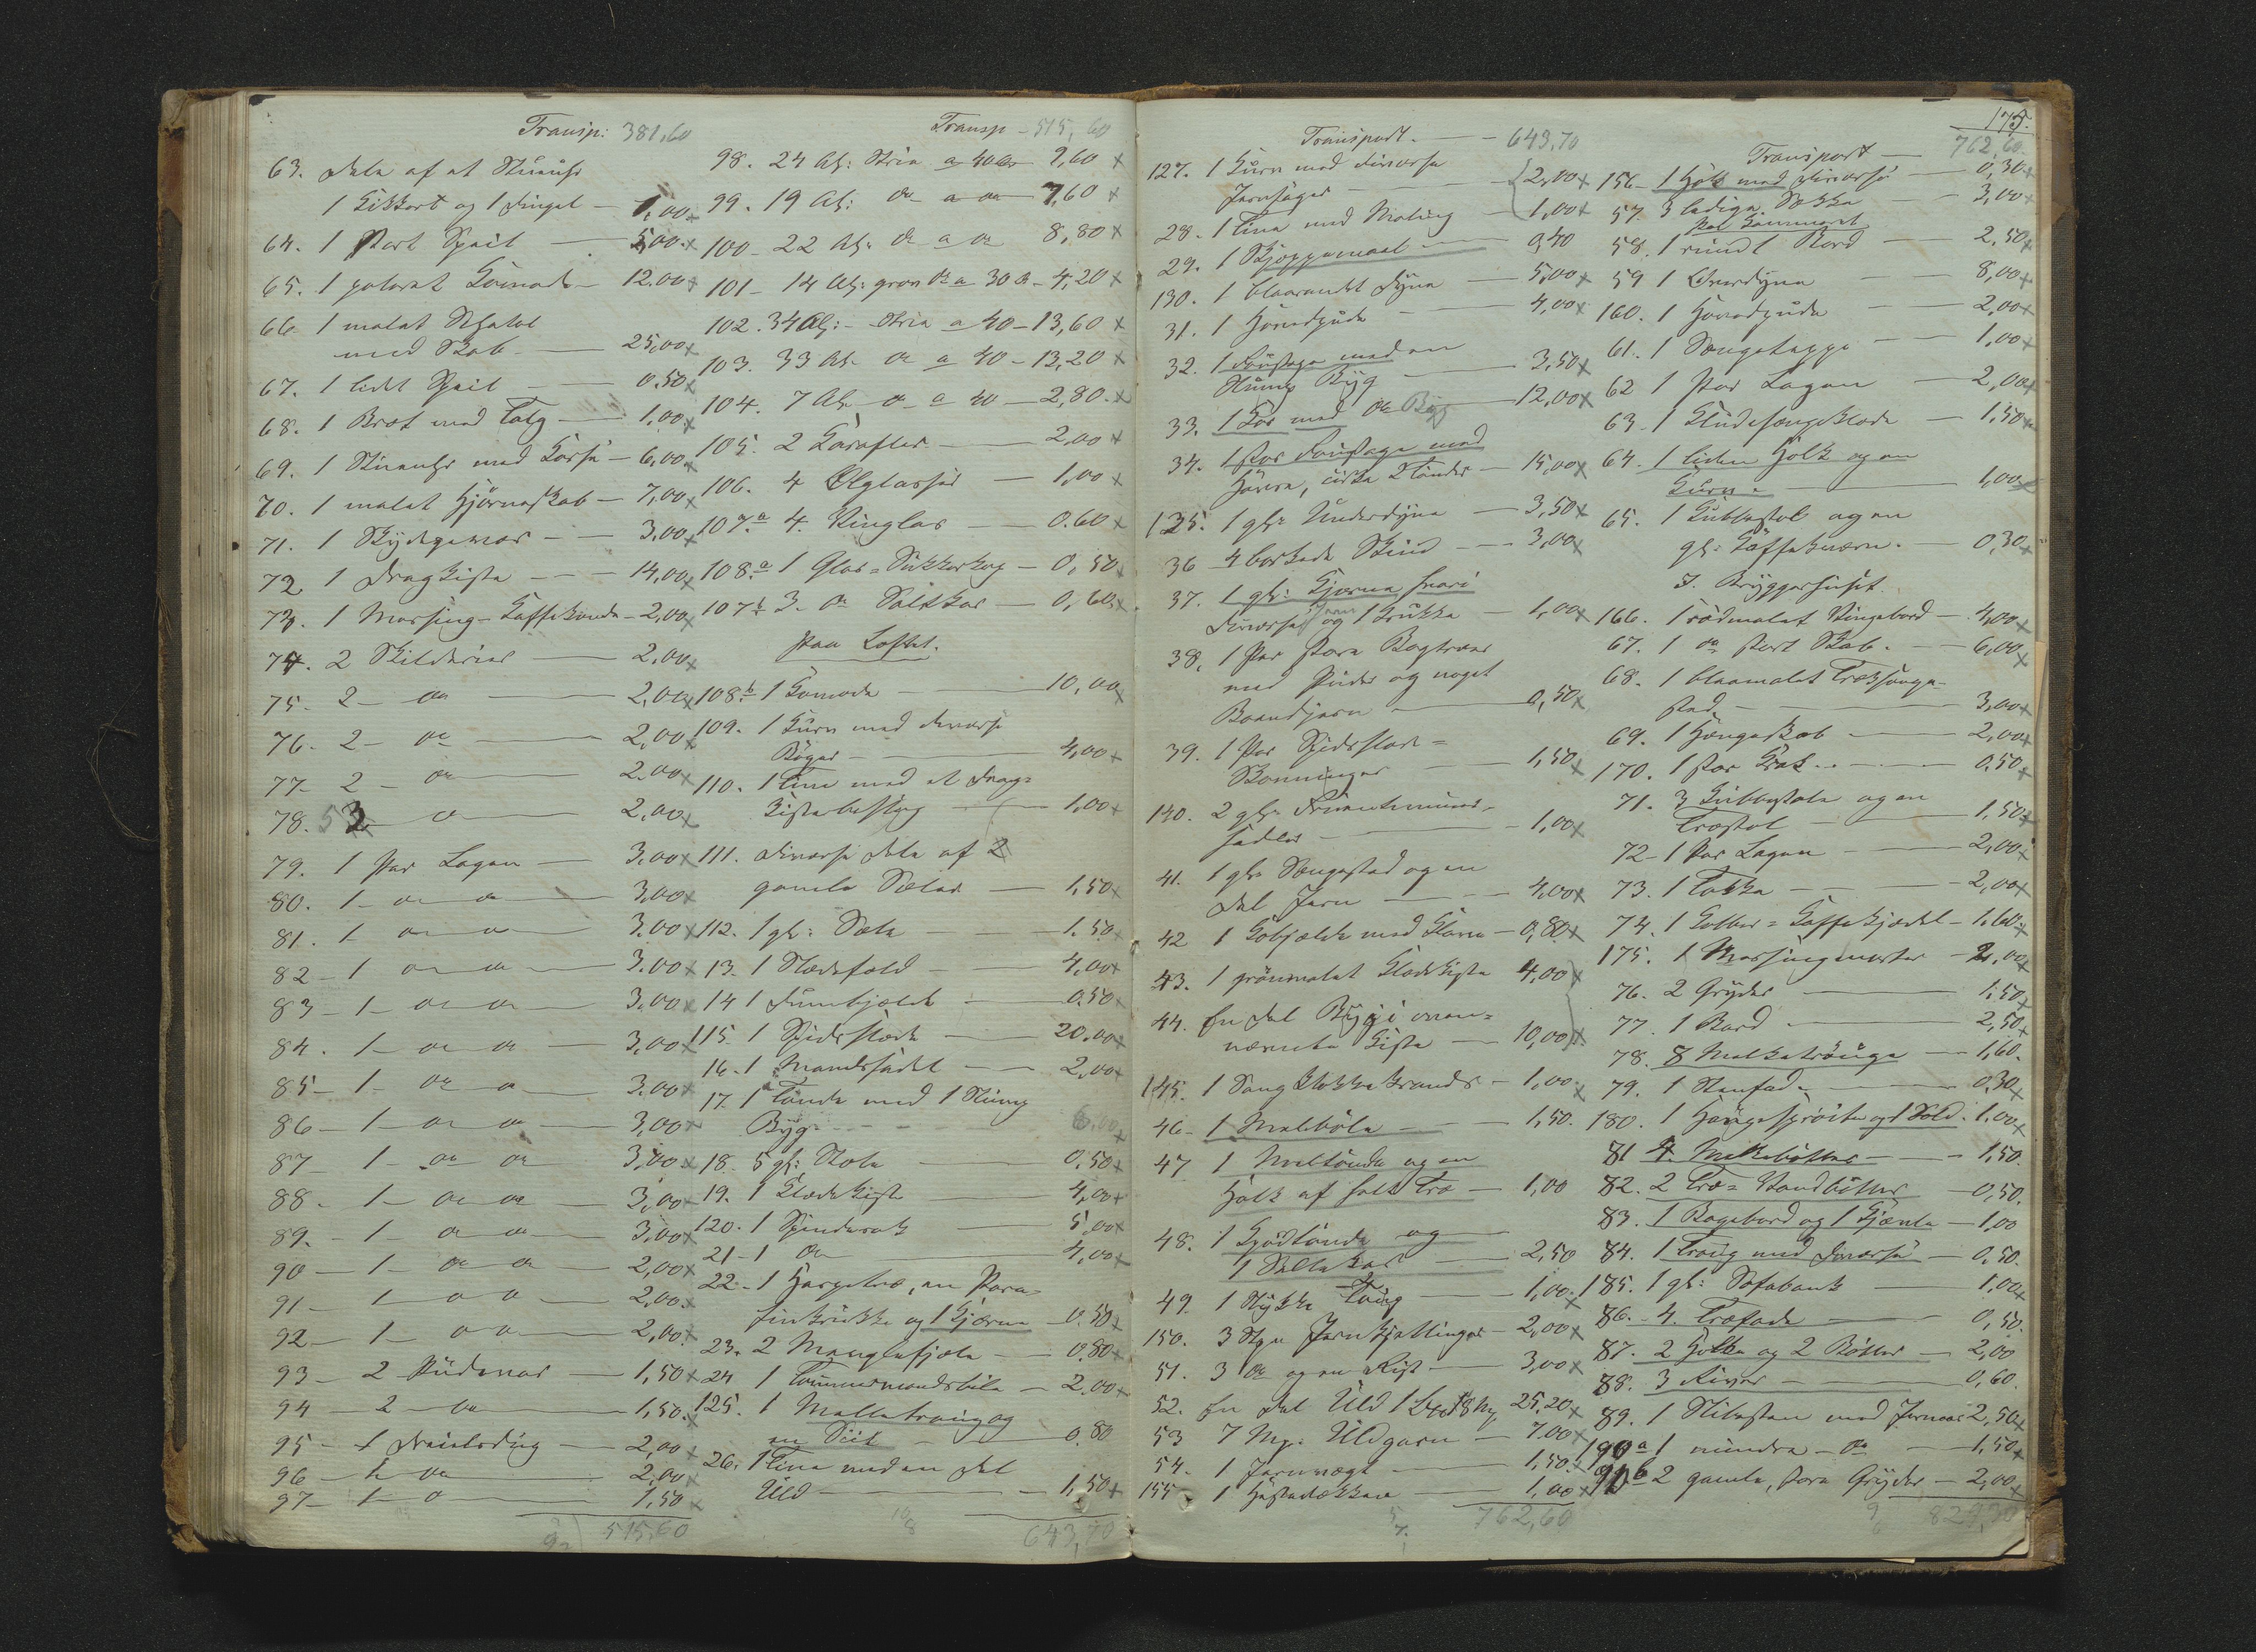 Transp: 381,60
63. Dele af et Stueuhr
1 Kikkert og 1 Pingel - 1,00 x
64. 1 stort Speil - 5,00 x
65. 1 poleret Komode - 12,00 x
66 1 malet Schatol
med Skab - 25,00 x
67. 1 lidet Speil - 0,50 x
68. 1 Bret med Talg - 1,00 x
69. 1 Stueuhr med Kasse - 6,00 x
70. 1 malet Hjørneskab - 7,00 x
71. 1 Skydegevær - 3,00 x
72 1 Dragkiste - 14,00 x
73. 1 Messing-Kaffekande - 2,00 x
74. 2 Skilderier - 2,00 x
75 - 2 - do - 2,00 x
76 - 2 - do - 2,00 x
77 - 2 - do - 2,00 x
78. 3 - do - 2,00 x
79. 1 Par Lagen - 3,00 x
80. 1 - do do - 3,00 x
81. 1 - do do - 3,00 x
82 - 1 - do do - 3,00 x
83 - 1 - do do - 3,00 x
84. 1 - do do - 3,00 x
85 - 1 - do do - 3,00 x
86 - 1 - do do - 3,00 x
87 - 1 - do do - 3,00 x
88 - 1 - do do - 3,00 x
89. - 1 - do do - 3,00 x
90 - 1 - do do - 2,00 x
91 - 1 - do do - 2,00 x
92 - 1 - do do - 2,00 x
93 - 2 Pudevar - 1,50 x
94 - 2 - do - 1,50 x
95 - 1 Dreielsdug - 2,00 x
96 - 1 do - 2,00 x
97 - 1 - do - 1,50 x
515,60
Transp - 515,60
98. 24 Al: Strie a 40 Øre 9,60 x
99. 19 Al: do a do 7,60 x
100 - 22 Al: do a do 8,80 x
101 - 14 Al: grov do a 30 Ø - 4,20 x
102. 34 Al: - Strie a 40 - 13,60 x
103. 33 Al: do a 40 - 13,20 x
104. 7 Al: do a 40 - 2,80 x
105. 2 Karafler - 2,00 x
106. 4 Ølglasse - 1,00 x
107a. 4 Vinglas - 0,60 x
108a 1 Glas-Sukkerkop - 0,50 x
107b 3. do Saltkar - 0,60 x
Paa Loftet.
108b 1 Komode - 10,00 x
109. 1 Kurv med diverse
Bøger - 4,00 x
110. 1 Tine med et Drag-
kistebeslag - 1,00 x
111. diverse Dele af 2
gamle Sæler - 1,50 x
112. 1 gl: Sæle - 1,50 x
13. 1 Slædefæld - 4,00 x
14 1 Dumbjælde - 0,50 x
115. 1 Spidsslæde - 20,00 x
16. 1 Mandssadel - 2,00 x
17. 1 Tønde med 1 Skumg
Byg - 6,00 x
18. 5 gl: Stole 0,50 x
19. 1 Klædekiste 4,00 x
120. 1 Spinderok 5,00 x
21 - 1 do 4,00 x
22 - 1 Haspetræ, en Para-
finkrukke og 1 Kjærne - 0,50 x
23. 2 Manglefjæle - 0,80 x
24 1 Tømmermandsbile - 2,00 x
125. 1 Melketraug og
en Siil - 0,80
26. 1 Tine med en Del
Uld - 1,50 x
643,70
Transport - 643,70
127. 1 Kurv med diverse
Jernsager - 2,00 x
28. 1 Tine med Maling - 1,00 x
29. 1 Skjeppemaal - 0,40
130. 1 blaarandet Dyne - 5,00 x
31. 1 Hovedpude - 4,00 x
32. 1 Foustage med en
Skump Byg - 3,50 x
33. 1 Kar med do Byg 12,00 x
34. 1 stor Foustage med
Havre, cirka 2 Tønder - 15,00 x
135. 1 gl: Underdyne - 3,50 x
36 4 barkede Skind - 3,00 x
37. 1 gl: Kjærne hvori
diverse og 1 Krukke - 1,00 x
38. 1 Par store Bogtræer
med Puder og noget
Baandjern - 0,50 x
39. 1 Par Spidsslæde-
Skonninger - 1,50 x
140. 2 gl: Fruentimmer-
sadler - 1,00 x
41. 1 gl: Sengestad og en
Del Jern - 4,00 x
42 1 Kobjælde med Klave - 0,80 x
43. 1 grønmalet Klædekiste 4,00
44. En Del Byg i oven-
nævnte Kiste - 10,00 x
145. 1 Væg Klokkekrands - 1,00 x
46 - 1 Melebøle - 1,50.
47 1 Meltønde og en
Holk af helt Træ - 1,00
48. 1 Kjødtønde og
1 Saltekar 2,50
49. 1 Stykke Taug - 1,00 x
150. 3 Stkr Jernkjættinger - 2,00 x
51. 3 do og en Rist - 3,00 x
52. En Del Uld 25,20 x
53 7 Mg: Uldgarn - 7,00 x
54. 1 Jernvægt - 1,50 x
155 1 Hestedækken - 1,00 x
762,60
175.
Transport - 762,60
156 - 1 Holk med diverse - 0,30 x
57. 3 ledige Sække - 3,00 x
58. 1 rundt Bord - 2,50 x
59 1 Overdyne - 8,00 x
160. 1 Hovedpude - 2,00 x
61. 1 Sengeteppe - 1,00 x
62 1 Par Lagen - 2,00 x
63 - 1 Kludesengklæde - 1,50 x
64. 1 liden Holk og en
Kurv - 1,00 x
65. 1 Kubbestol og en
gl: Kaffekværn - 0,30 x
I Bryggerhuset.
166. 1 rødmalet Vingebord - 4,00 x
67. 1 do stort Skab - 6,00 x
68. 1 blaamalet Træksenge-
stad - 3,00 x
69. 1 Hængeskab - 2,00 x
170. 1 stor Krak - 0,50 x
71. 3 Kubbestole og en
Træstol - 1,50 x
72 - 1 Par Lagen - 2,00 x
73. 1 Takke - 2,00 x
74. 1 Kobber-Kaffekjedel - 1,60 x
175. 1 Messingmorter - 2,00 x
76. 2 Gryder - 1,50 x
77. 1 Bord - 2,50 x
78. 8 Melketrauge - 1,60.
79. 1 Stenfad - 0,30 x
180. 1 Haugesprøite og 1 Sold - 1,00 x
81 4 Melkebøtter - 1,50.
82. 2 Træ-Vandbøtter - 0,50.
83. 1 Bagebord og 1 Kjævle - 1,00
84. 1 Traug med diverse - 0,50.
185. 1 gl: Sofabænk - 1,00 x
86. 4. Træfade - 0,50.
87. 2 Holke og 2 Bøtter - 2,00
88. 3 River - 0,60.
89. 1 Slibesten med Jernvæ 2,50 x
190a 1 mindre do - 1,50 x
190b 2 gamle, store Gryder - 2,00 x